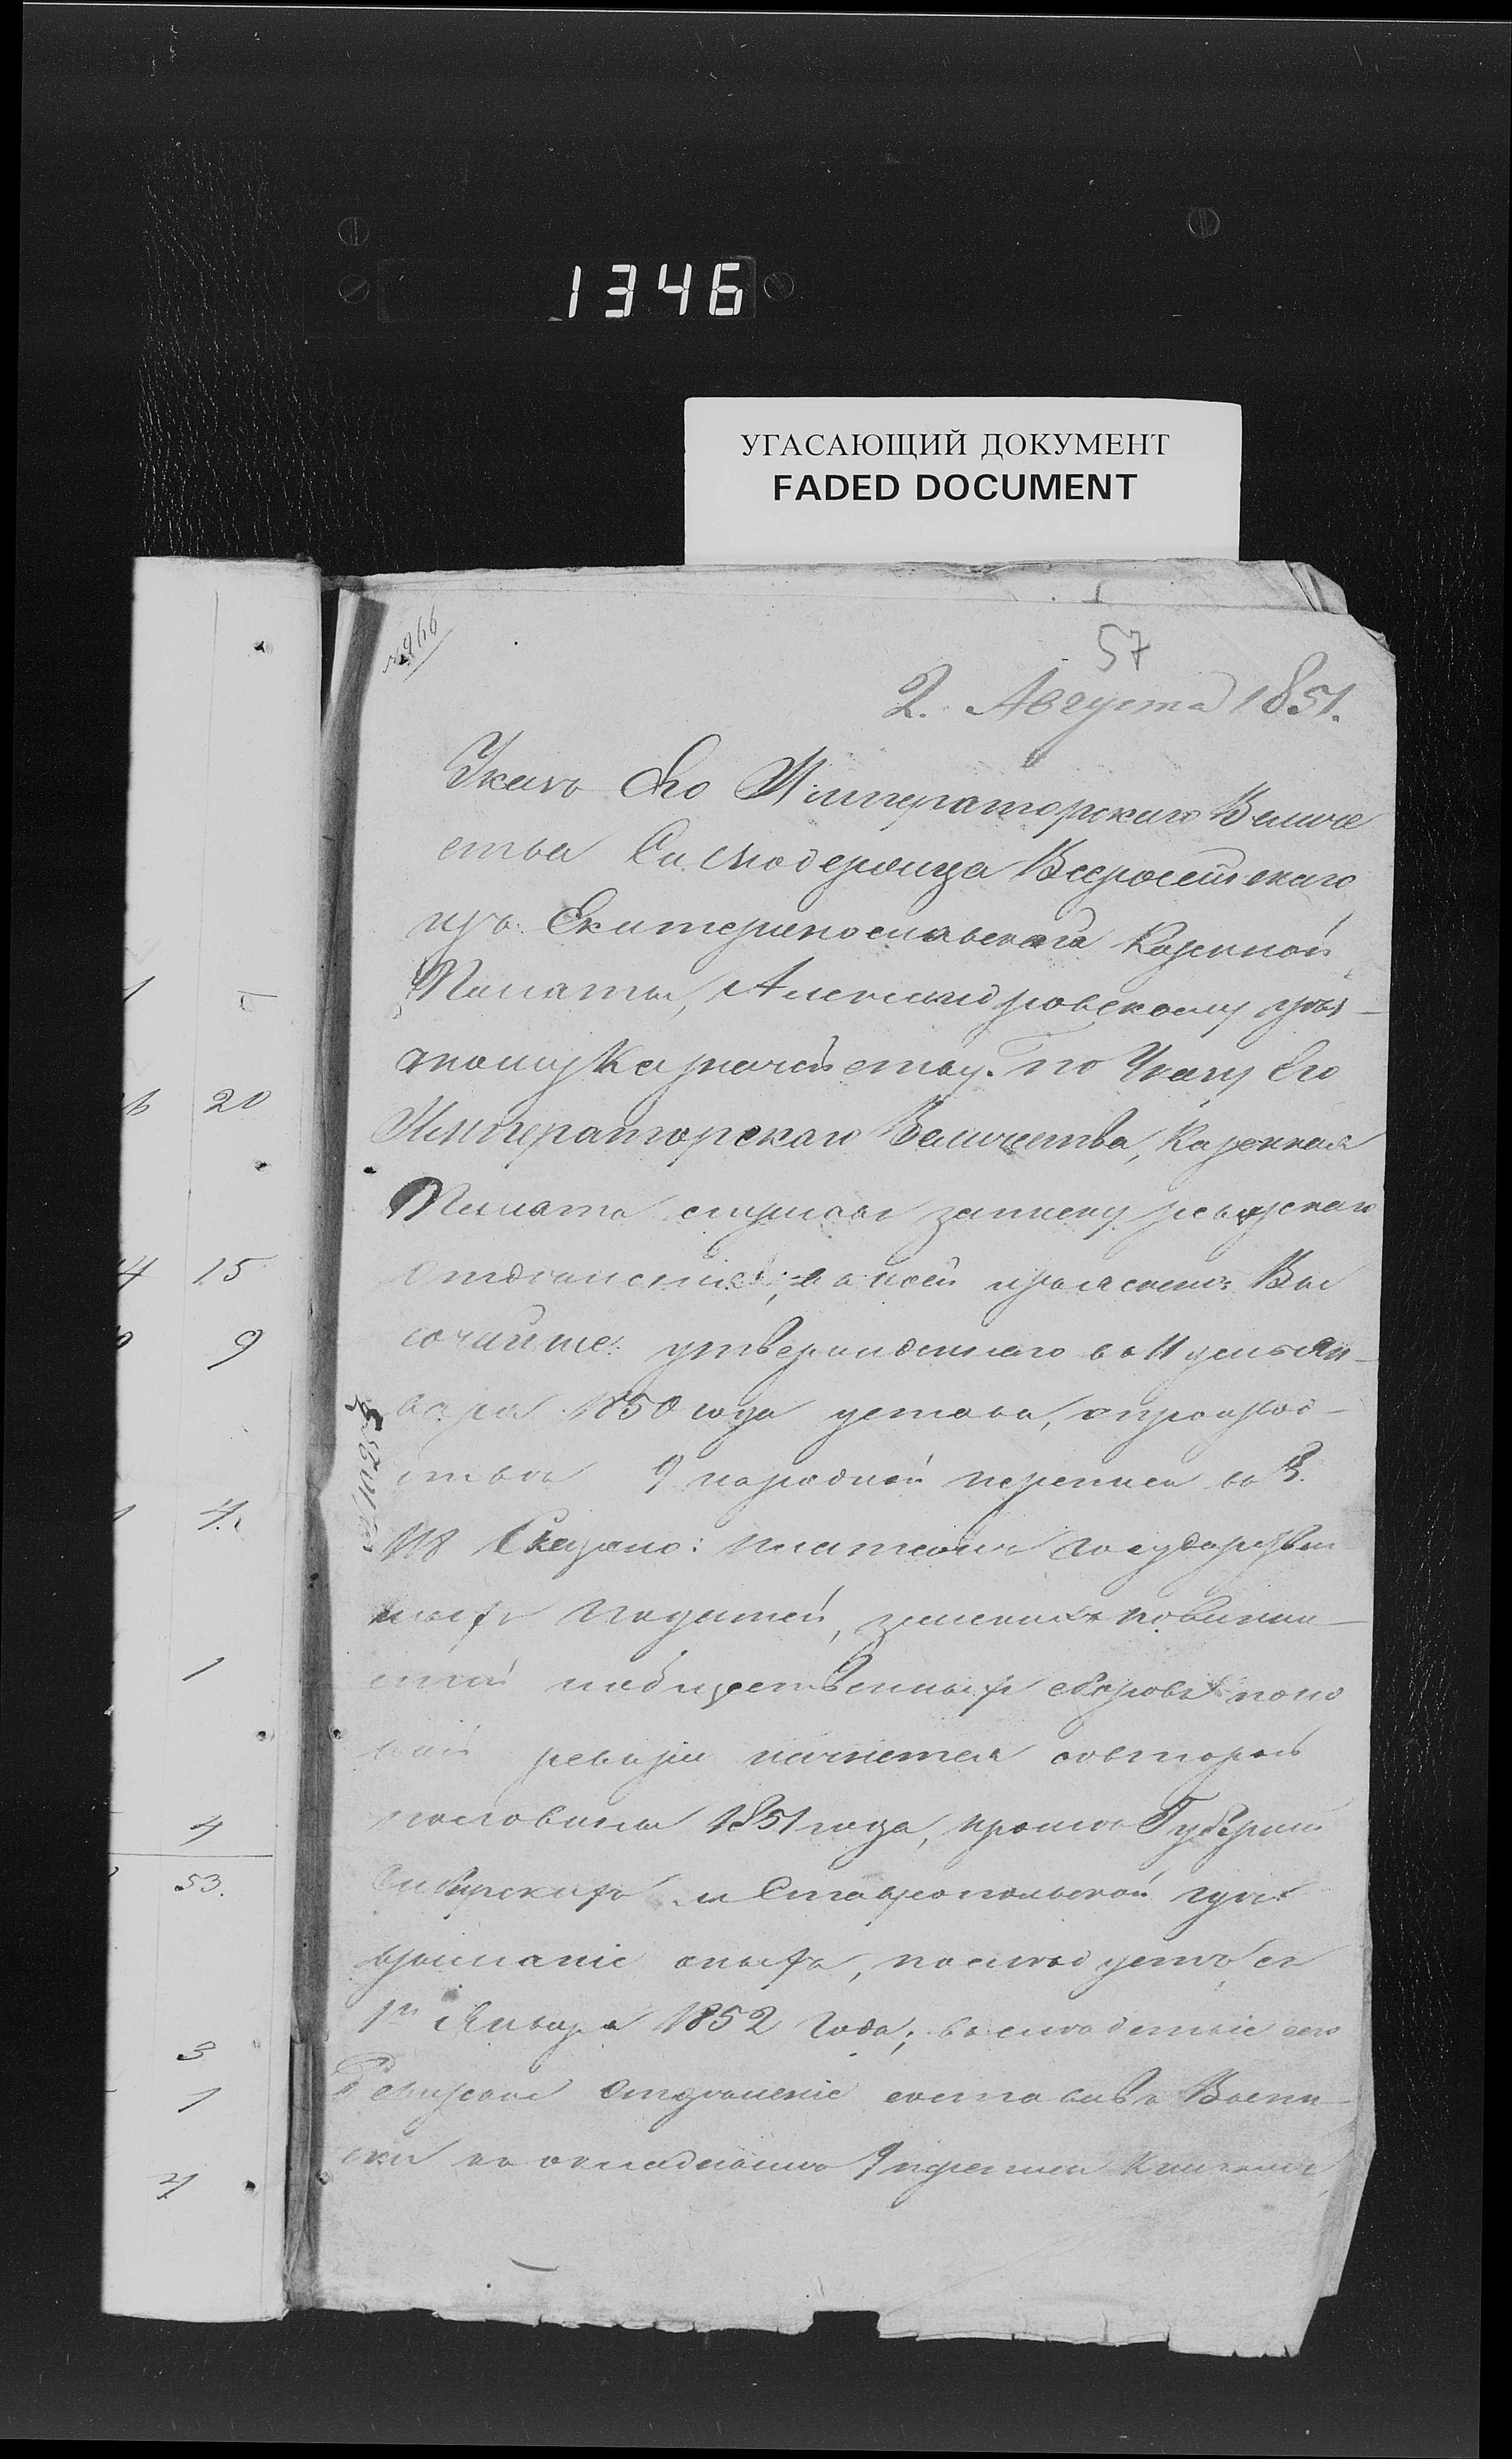 1346
УГАСАЮЩИЙ ДОКУМЕНТ
FADED DOCUMENT
57
2. Августа 1851.
Указъ Его Императорскаго Величе
ства Самодержца Всероссійскаго
изъ Екатеринославской Казенной
Палаты, Александровскому уѣз-
дному Казначейству. По Указу Его
Императорскаго Величества, Казенная
Палата слушала записку ревизскаго
отдѣленія; въ коей изъяснено: Вы
сочайше утвержденнаго въ 11 день Ян-
варя 1850 года устава, о производ-
ствѣ 9 народной переписи въ §.
118 Сказано: платежъ Государствен
ныхъ податей, земскихъ повинно
стей и общественныхъ сборовъ по но
вой ревизіи начнется со второй
половины 1851 года, кромѣ Губерній
Сибирскихъ и Ставропольской гдѣ
взиманіе оныхъ, послѣдуетъ съ
1го Января 1852 года; въ слѣдствіе сего
Ревизское Отдѣленіе составивъ
по окладнымъ книгамъ
20
15
9
4.
1
4
53.
3
1
4